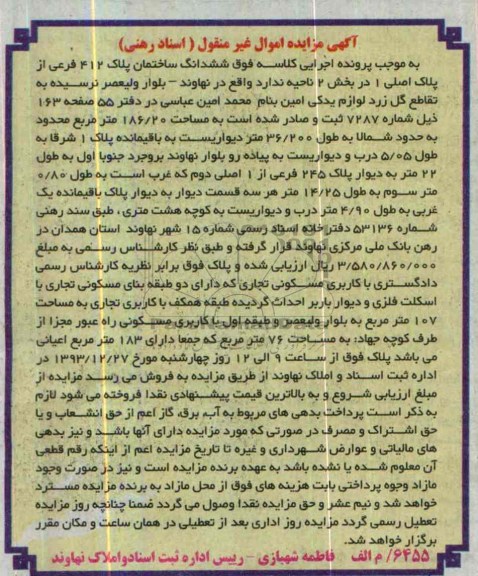 آگهی مزایده اموال غیر منقول ( اسناد رهنی)
به موجب پرونده اجرایی کلاسه فوق ششدانگ ساختمان پلاک ۴۱۲ فرعی از
پلاک اصلی ۱ در بخش ۲ ناحیه ندارد واقع در نهاوند – بلوار ولیعصر نرسیده به
تقاطع گل زرد لوازم یدکی امین بنام محمد امین عباسی در دفتر ۵۵ صفحه ۱۶۳
ذیل شماره ۷۲۸۷ ثبت و صادر شده است به مساحت ۱۸۶/۲۰ متر مربع محدود
به حدود شمالا به طول ۳۶/۲۰۰ متر دیواریست به باقیمانده پلاک ۱ شرقا به
طول ۵/۰۵ درب و دیواریست به پیاده رو بلوار نهاوند بروجرد جنوبا اول به طول
۲۲ متر به دیوار پلاک ۲۴۵ فرعی از ۱ اصلی دوم که غرب است به طول ۰/۸۰
متر سوم به طول ۱۴/۲۵ متر هر سه قسمت دیوار به دیوار پلاک باقیمانده یک
غربی به طول ۴/۹۰ متر درب و دیواریست به کوچه هشت متری ، طبق سند رهنی
شماره ۵۳۱۳۶ دفتر خانه اسناد رسمی شماره ۱۵ شهر نهاوند استان همدان در
رهن بانک ملی مرکزی نهاوند قرار گرفته و طبق نظر کارشناس رسمی به مبلغ
۳/۵۸۰/۸۶۰/۰۰۰ ریال ارزیابی شده و پلاک فوق برابر نظریه کارشناس رسمی
دادگستری با کاربری مسکونی تجاری که دارای دو طبقه بنای مسکونی تجاری با
اسکلت فلزی و دیوار باربر احداث گردیده طبقه همکف با کاربری تجاری به مساحت
۱۰۷ متر مربع به بلوار ولیعصر و طبقه اول با کاربری مسکونی راه عبور مجزا از
طرف کوچه جهاد: به مساحت ۷۶ متر مربع که جمعا دارای ۱۸۳ متر مربع اعیانی
می باشد پلاک فوق از ساعت ۹ الی ۱۲ روز چهارشنبه مورخ ۱۳۹۳/۱۲/۲۷ در
اداره ثبت اسناد و املاک نهاوند از طریق مزایده به فروش می رسد مزایده از
مبلغ ارزیابی شروع و به بالاترین قیمت پیشنهادی نقدا فروخته می شود لازم
به ذکر است پرداخت بدهی های مربوط به آب، برق، گاز اعم از حق انشعاب و یا
حق اشتراک و مصرف در صورتی که مورد مزایده دارای آنها باشد و نیز بدهی
های مالیاتی و عوارض شهرداری و غیره تا تاریخ مزایده اعم از اینکه رقم قطعی
آن معلوم شده یا نشده باشد به عهده برنده مزایده است و نیز در صورت وجود
مازاد وجوه پرداختی بابت هزینه های فوق از محل مازاد به برنده مزایده مسترد
خواهد شد و نیم عشر و حق مزایده نقدا وصول می گردد ضمنا چنانچه روز مزایده
تعطیل رسمی گردد مزایده روز اداری بعد از تعطیلی در همان ساعت و مکان مقرر
برگزار خواهد شد.
۶۴۵۵/ م الف فاطمه شهبازی – رییس اداره ثبت اسناد واملاک نهاوند